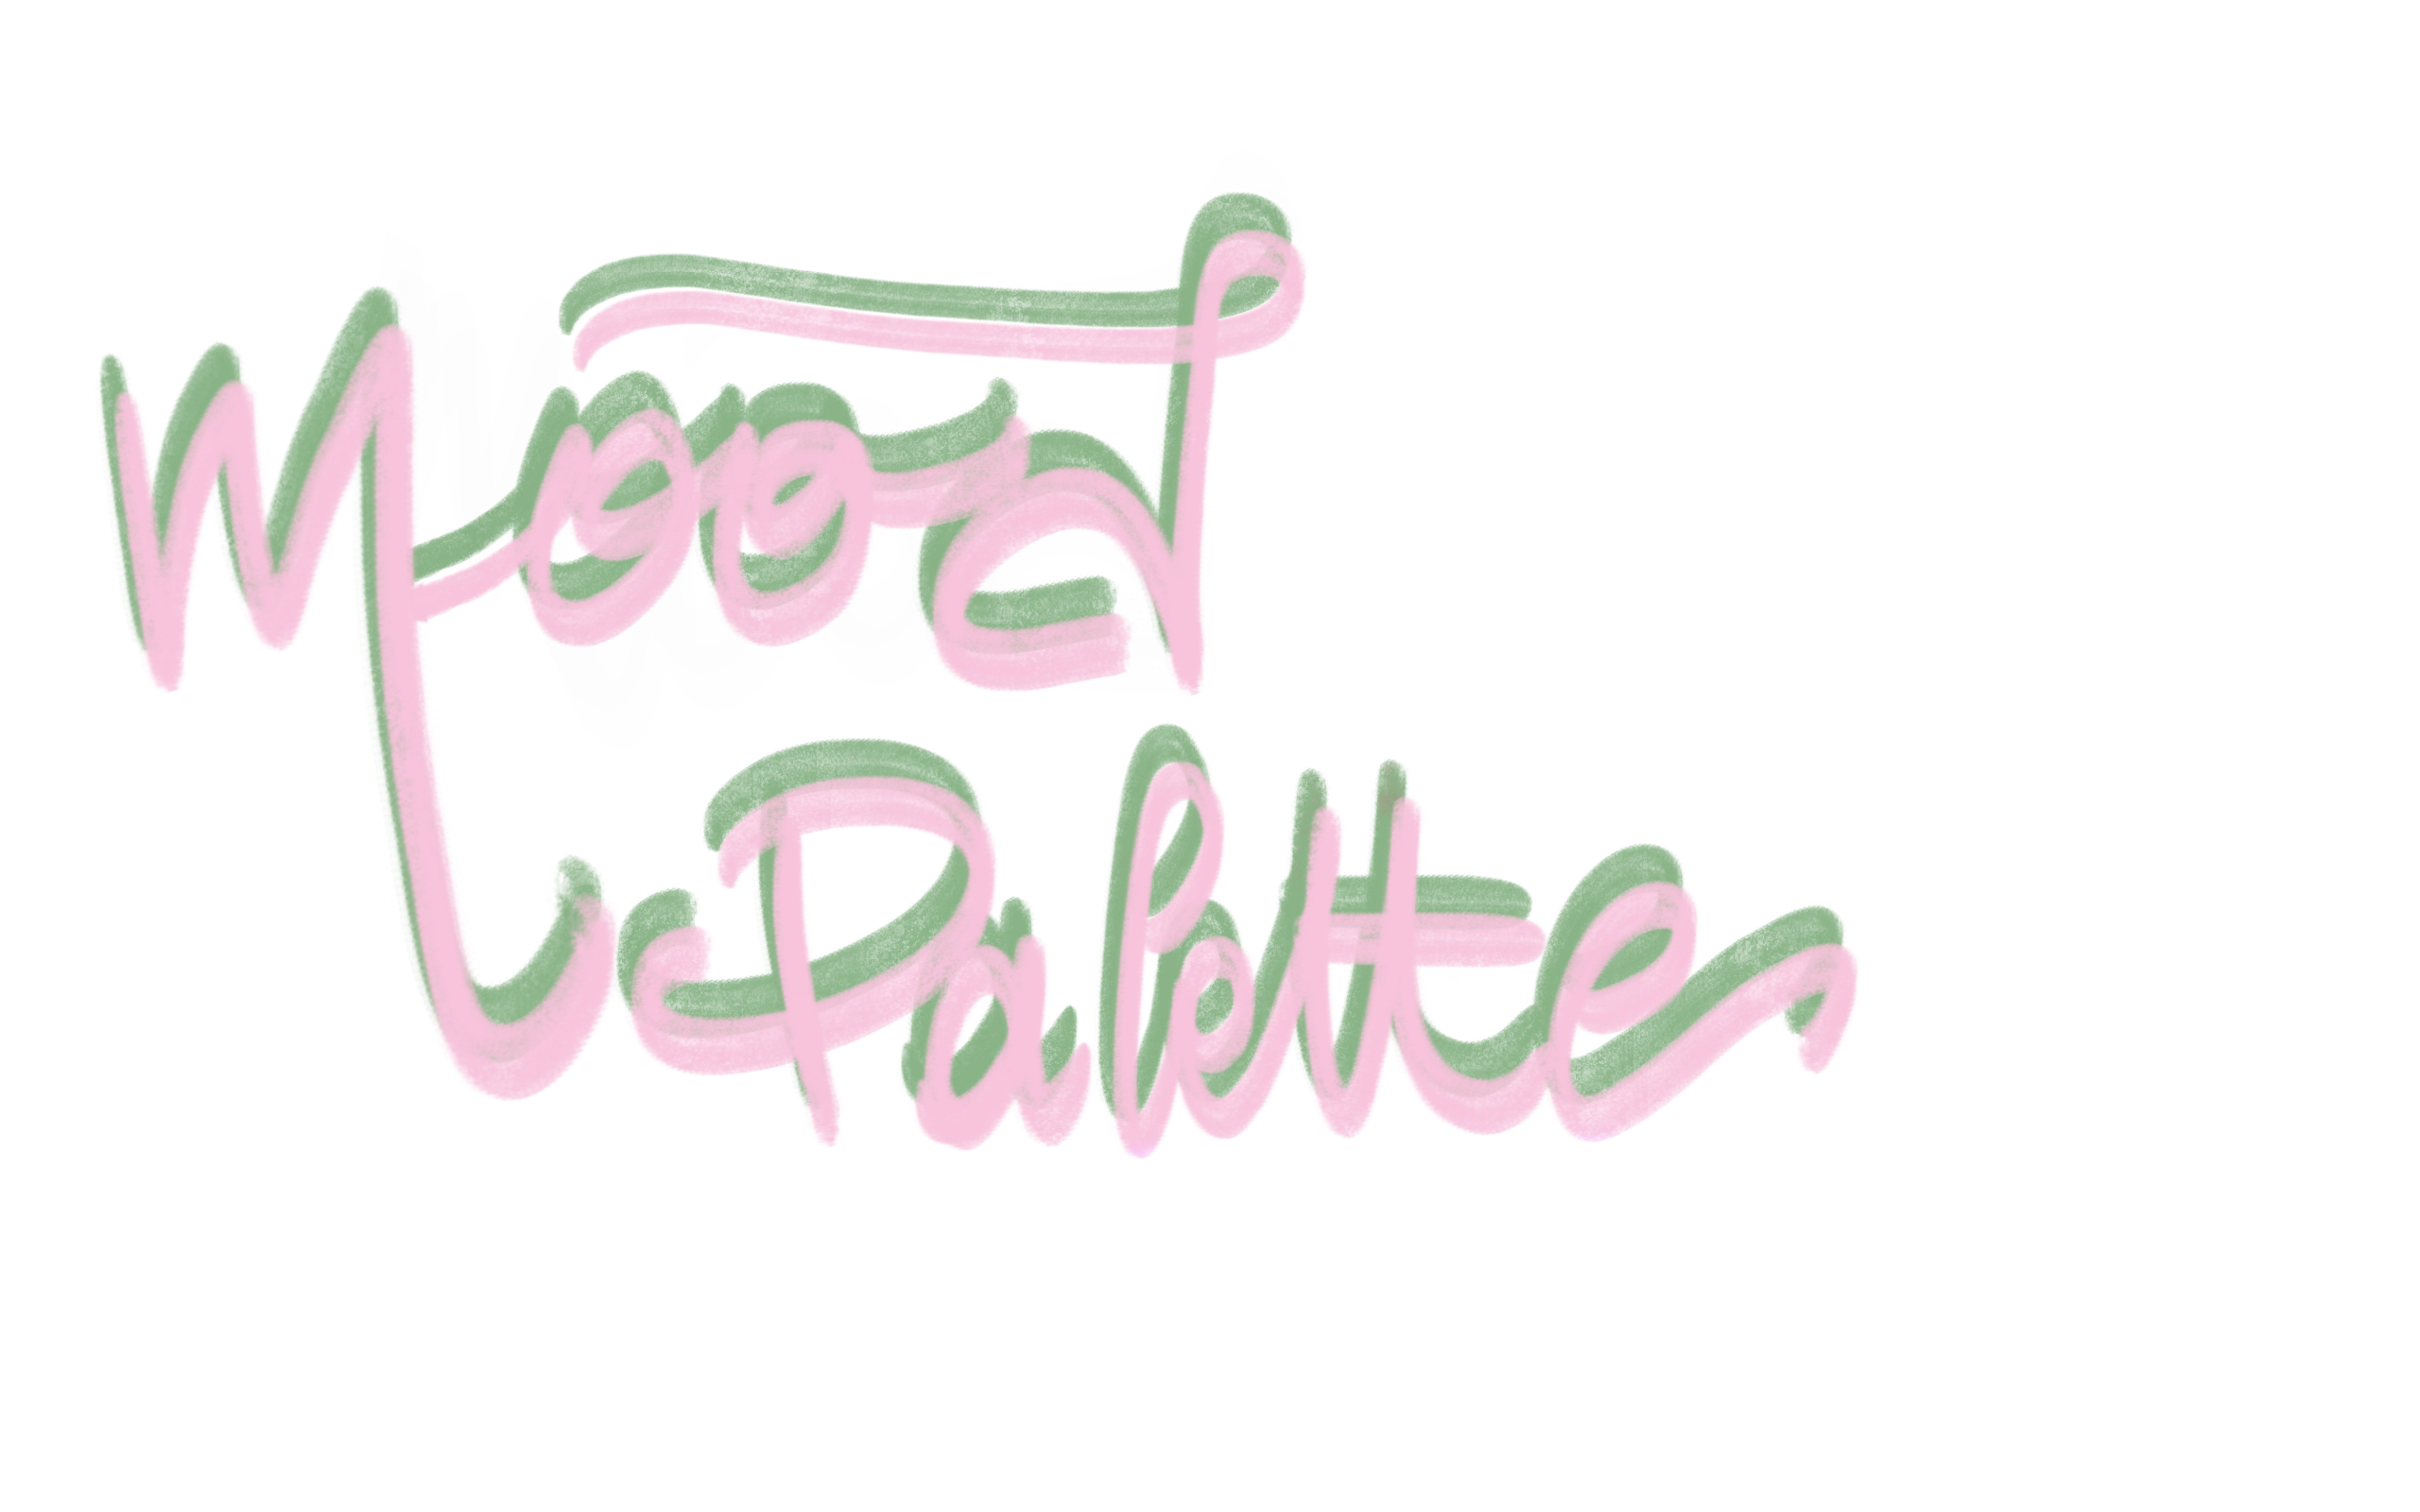 Mood
Palette